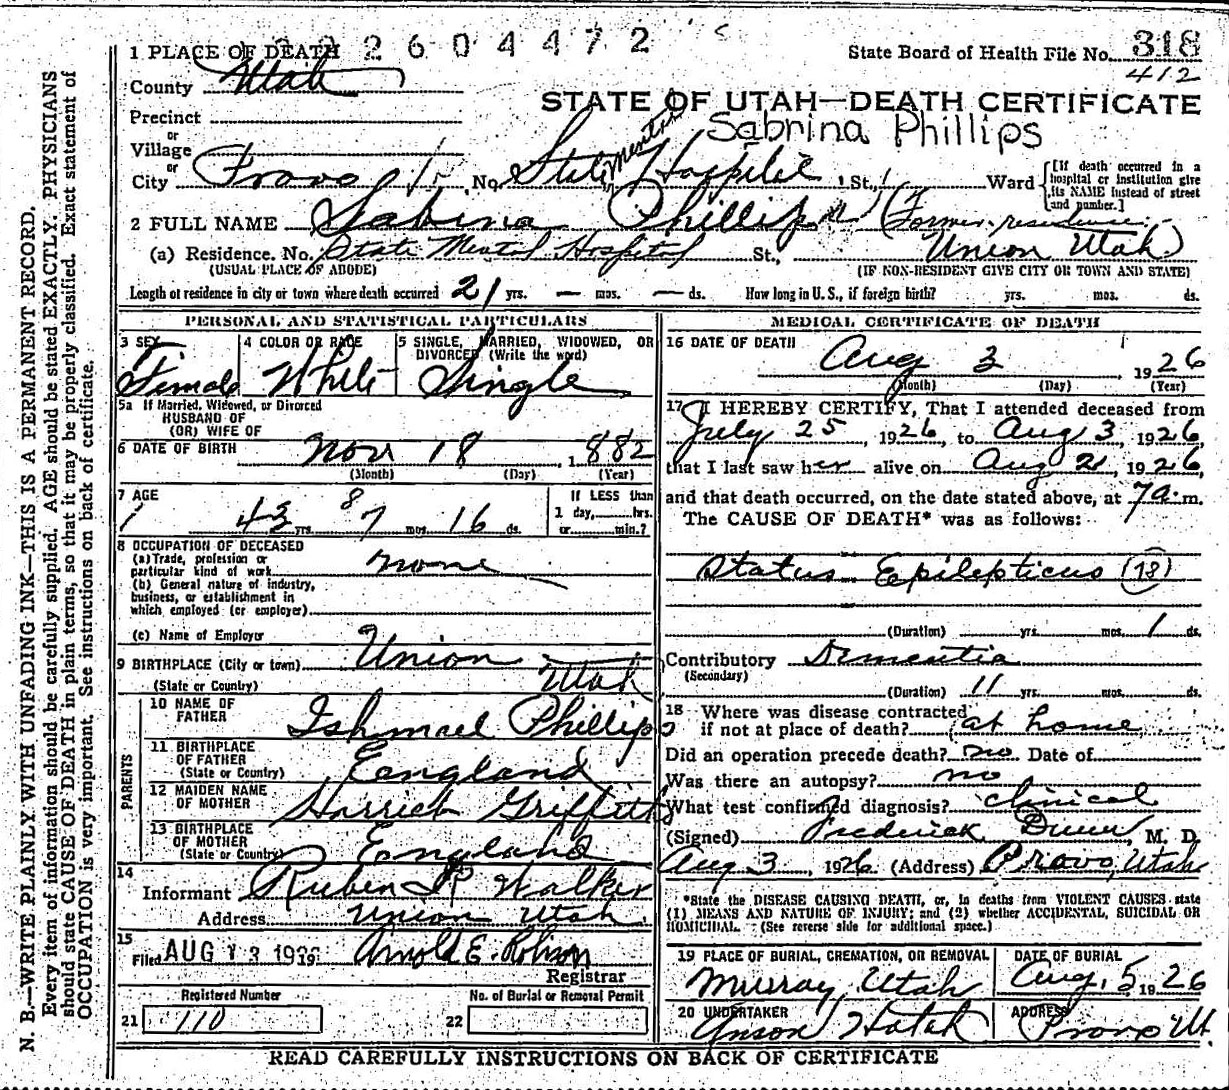 2 2 6 0 4 4 7 2
1 PLACE OF DEATH
State Board of Health File No. 318
412
County Utah
STATE OF UTAH—DEATH CERTIFICATE
Precinct
Sabrina Phillips
or
Village
or
City Provo No. State Mental Hospital St., Ward
[If death occurred in a hospital or institution give its NAME instead of street and number.]
2 FULL NAME Sabina Phillips (Former residence
(a) Residence. No. State Mental Hospital St., Union Utah)
(USUAL PLACE OF ABODE) (IF NON-RESIDENT GIVE CITY OR TOWN AND STATE)
Length of residence in city or town where death occurred 21 yrs. — mos. — ds. How long in U. S., if foreign birth? yrs. mos. ds.
PERSONAL AND STATISTICAL PARTICULARS
3 SEX 4 COLOR OR RACE 5 SINGLE, MARRIED, WIDOWED, OR DIVORCED (Write the word)
Female White Single
5a If Married, Widowed, or Divorced
HUSBAND OF
(OR) WIFE OF
6 DATE OF BIRTH Nov 18 1882
(Month) (Day) (Year)
7 AGE If LESS than
43 yrs. 8 7 mos. 16 ds. 1 day, hrs.
or min.?
8 OCCUPATION OF DECEASED
(a) Trade, profession or
particular kind of work none
(b) General nature of industry,
business, or establishment in
which employed (or employer)
(c) Name of Employer
9 BIRTHPLACE (City or town) Union
(State or Country) Utah
PARENTS
10 NAME OF FATHER Ishmael Phillips
11 BIRTHPLACE OF FATHER (State or Country) England
12 MAIDEN NAME OF MOTHER Harriet Griffiths
13 BIRTHPLACE OF MOTHER (State or Country) England
14
Informant Ruben P. Walker
Address Union Utah
15
Filed AUG 13 1926 Arnold E. Robison
Registrar
Registered Number No. of Burial or Removal Permit
21 110 22
MEDICAL CERTIFICATE OF DEATH
16 DATE OF DEATH
Aug 3 1926
(Month) (Day) (Year)
17 I HEREBY CERTIFY, That I attended deceased from
July 25, 1926, to Aug 3, 1926,
that I last saw her alive on Aug 2, 1926,
and that death occurred, on the date stated above, at 7a. m.
The CAUSE OF DEATH* was as follows:
Status Epilepticus (18)
(Duration) yrs. mos. 1 ds.
Contributory Dementia
(Secondary)
(Duration) 11 yrs. mos. ds.
18 Where was disease contracted
if not at place of death? at home
Did an operation precede death? no Date of
Was there an autopsy? no
What test confirmed diagnosis? clinical
(Signed) Frederick Dunn, M. D.
Aug 3, 1926 (Address) Provo, Utah
*State the DISEASE CAUSING DEATH, or, in deaths from VIOLENT CAUSES state
(1) MEANS AND NATURE OF INJURY; and (2) whether ACCIDENTAL, SUICIDAL OR
HOMICIDAL. (See reverse side for additional space.)
19 PLACE OF BURIAL, CREMATION, OR REMOVAL DATE OF BURIAL
Murray, Utah Aug. 5, 1926
20 UNDERTAKER ADDRESS
Anson Hatch Provo Ut.
READ CAREFULLY INSTRUCTIONS ON BACK OF CERTIFICATE
N. B.—WRITE PLAINLY WITH UNFADING INK—THIS IS A PERMANENT RECORD.
Every item of information should be carefully supplied. AGE should be stated EXACTLY. PHYSICIANS
should state CAUSE OF DEATH in plain terms, so that it may be properly classified. Exact statement of
OCCUPATION is very important. See instructions on back of certificate.